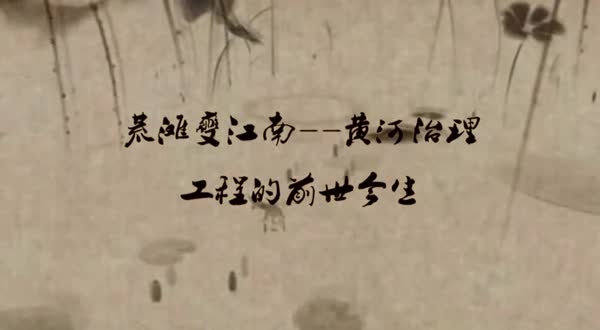 荒滩變江南--黄河治理
工程的前世今生